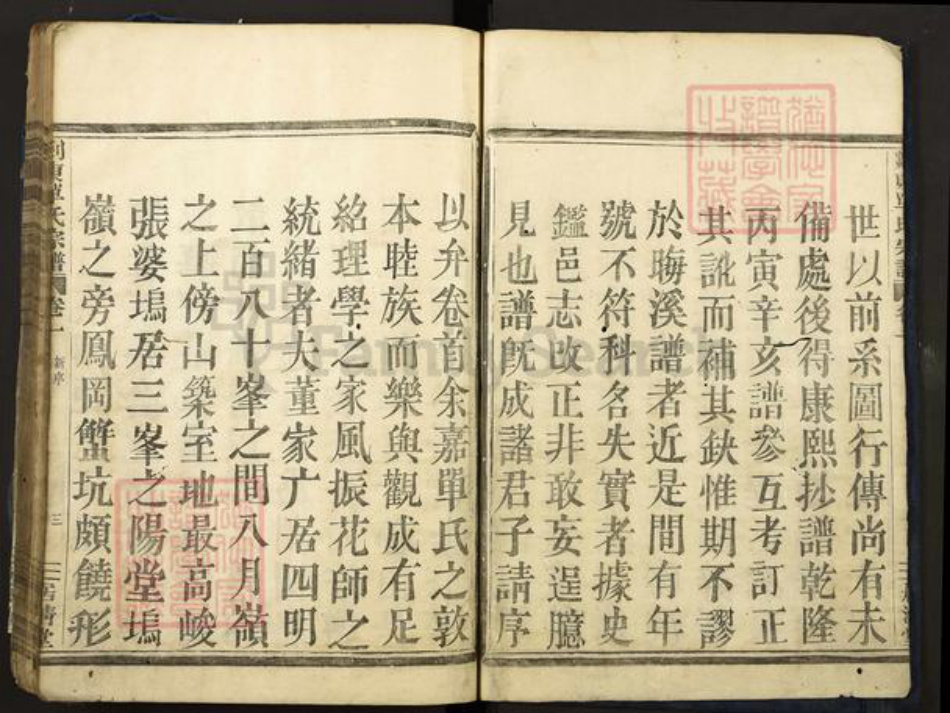 世以前系圖行傳尚有未
備處後得康熙抄譜乾隆
丙寅辛亥譜參互考訂正
其訛而補其缺惟期不謬
於晦溪譜者近是間有年
號不符科名失實者據史
鑑邑志改正非敢妄逞臆
見也譜旣成諸君子請序
以弁卷首余嘉單氏之敦
本睦族而樂與觀成有足
紹理學之家風振花師之
統緒者大董家广居四明
二百八十峯之間八月嶺
之上傍山築室地最高峻
張婆塢居三峯之陽堂塢
嶺之旁鳳岡蟹坑頗饒形
單氏宗譜 卷一 新序 三
FamilySearch